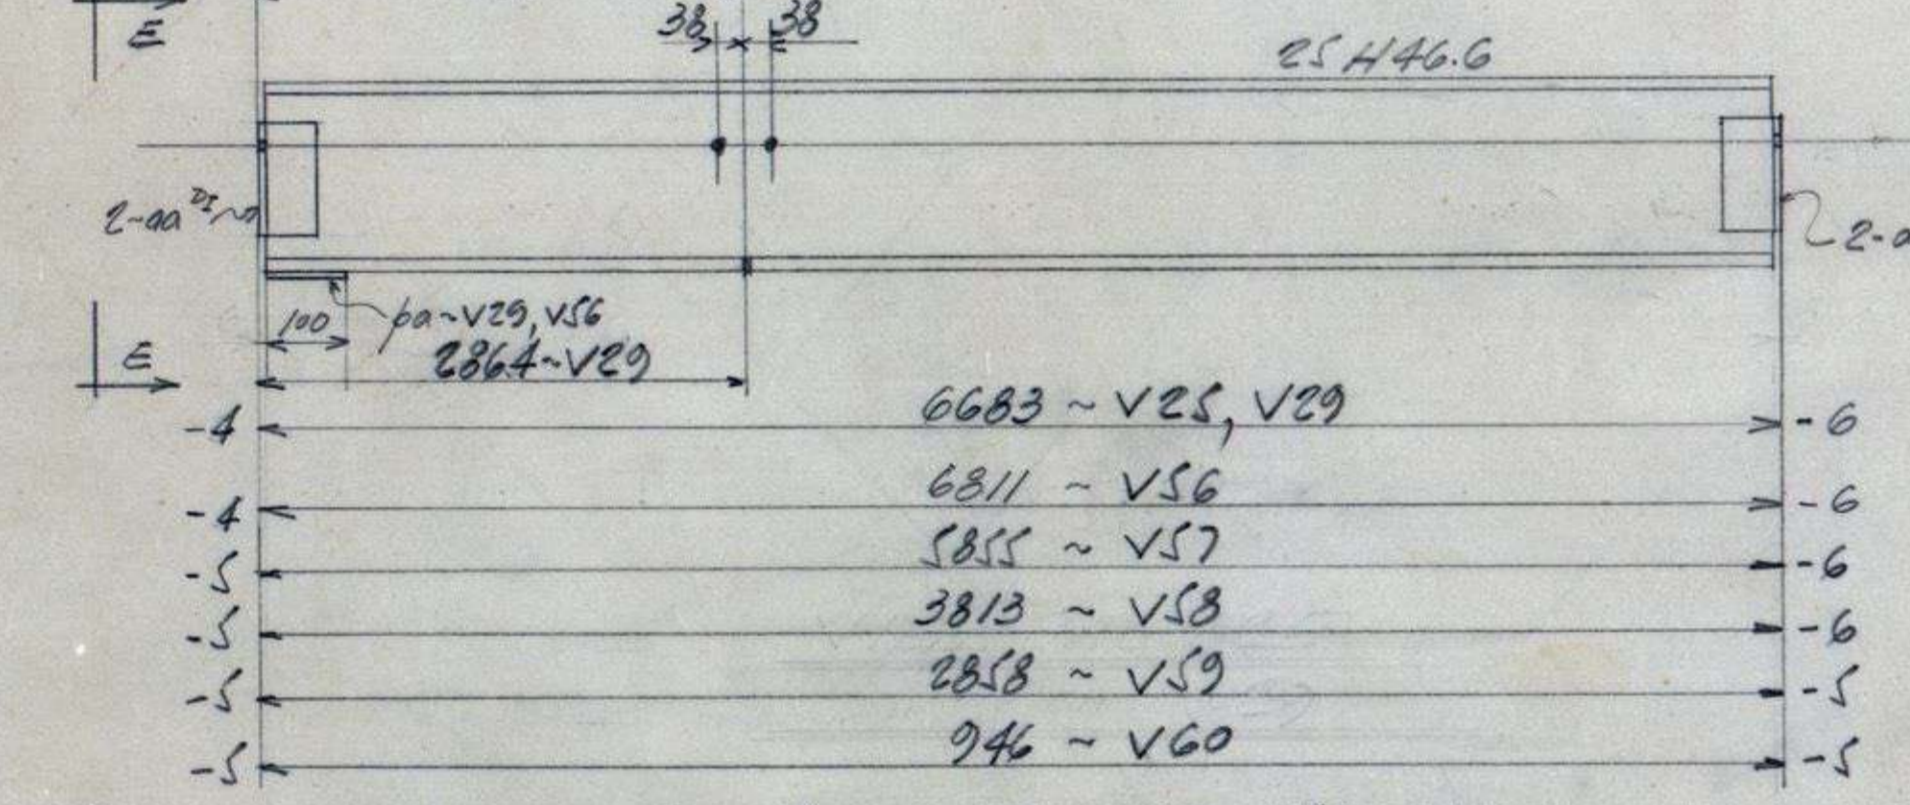 E
38 38
25 H46.6
2-aa DI
2-a
100
pa~V29, V56
2864~V29
E
-4 6683 ~ V25, V29 -6
-4 6811 ~ V56 -6
-5 5855 ~ V57 -6
-5 3813 ~ V58 -6
-5 2858 ~ V59 -5
-5 946 ~ V60 -5